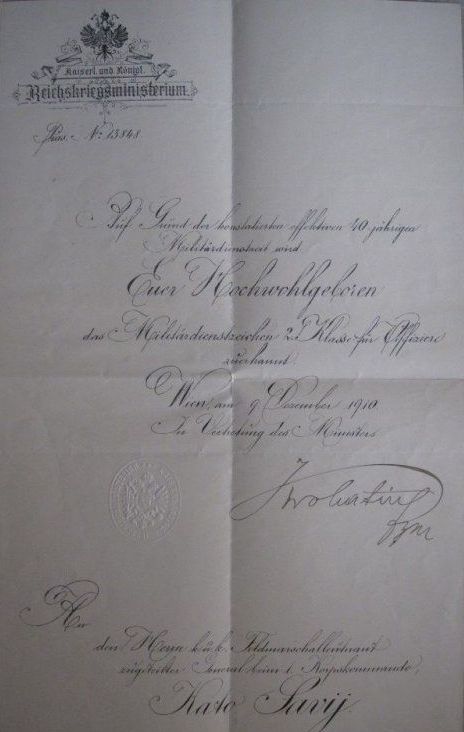 Kaiserl. und Königl.
Reichskriegsministerium.
Präs. Nº 13848.
Auf Grund der konstatierten effektiven 40 jährigen
Militärdienstzeit wird
Euer Hochwohlgeboren
das Militärdienstzeichen 2. Klasse für Offiziere
zuerkannt.
Wien, am 9. Dezember 1910.
In Vertretung des Ministers
An
den Herrn k. u. k. Feldmarschalleutnant
zugeteilter General beim 1. Korpskommando,
Kato Savij.